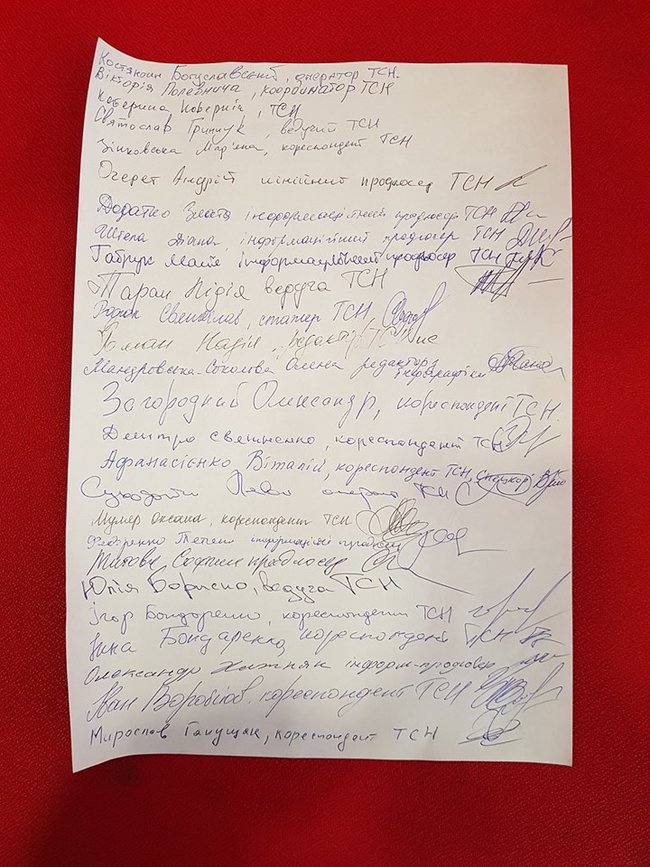 Костянтин Богуславський, оператор ТСН.
Вікторія Полевнича, координатор ТСН
ТСН
Святослав Гринчук, ведучий ТСН
Зінковська Мар'яна, кореспондент ТСН
Очерет Андрій лінійний продюсер ТСН
Додатко Злата інформаційний продюсер ТСН
Діана, інформаційний продюсер ТСН
Габрук Майя інформаційний продюсер ТСН
Таран Лідія ведуча ТСН
ТСН,
Роман Надія, редактор
Мандровська-Соколова Олена редактор
інфографіки
Загородний Олександр, кореспондент ТСН
Дмитро Святненко, кореспондент ТСН
Афанасієнко Віталій, кореспондент ТСН,
ТСН
Мулер Оксана, кореспондент ТСН
Федоренко Тетяна інформаційний продюсер
продюсер
Юлія Бориско, ведуча ТСН
Ігор Бондаренко, кореспондент ТСН
Інна Бондаренко кореспондент ТСН
Олександр Хижняк інформ-продюсер
Іван Воробйов. кореспондент ТСН
Мирослав Ганущак, кореспондент ТСН